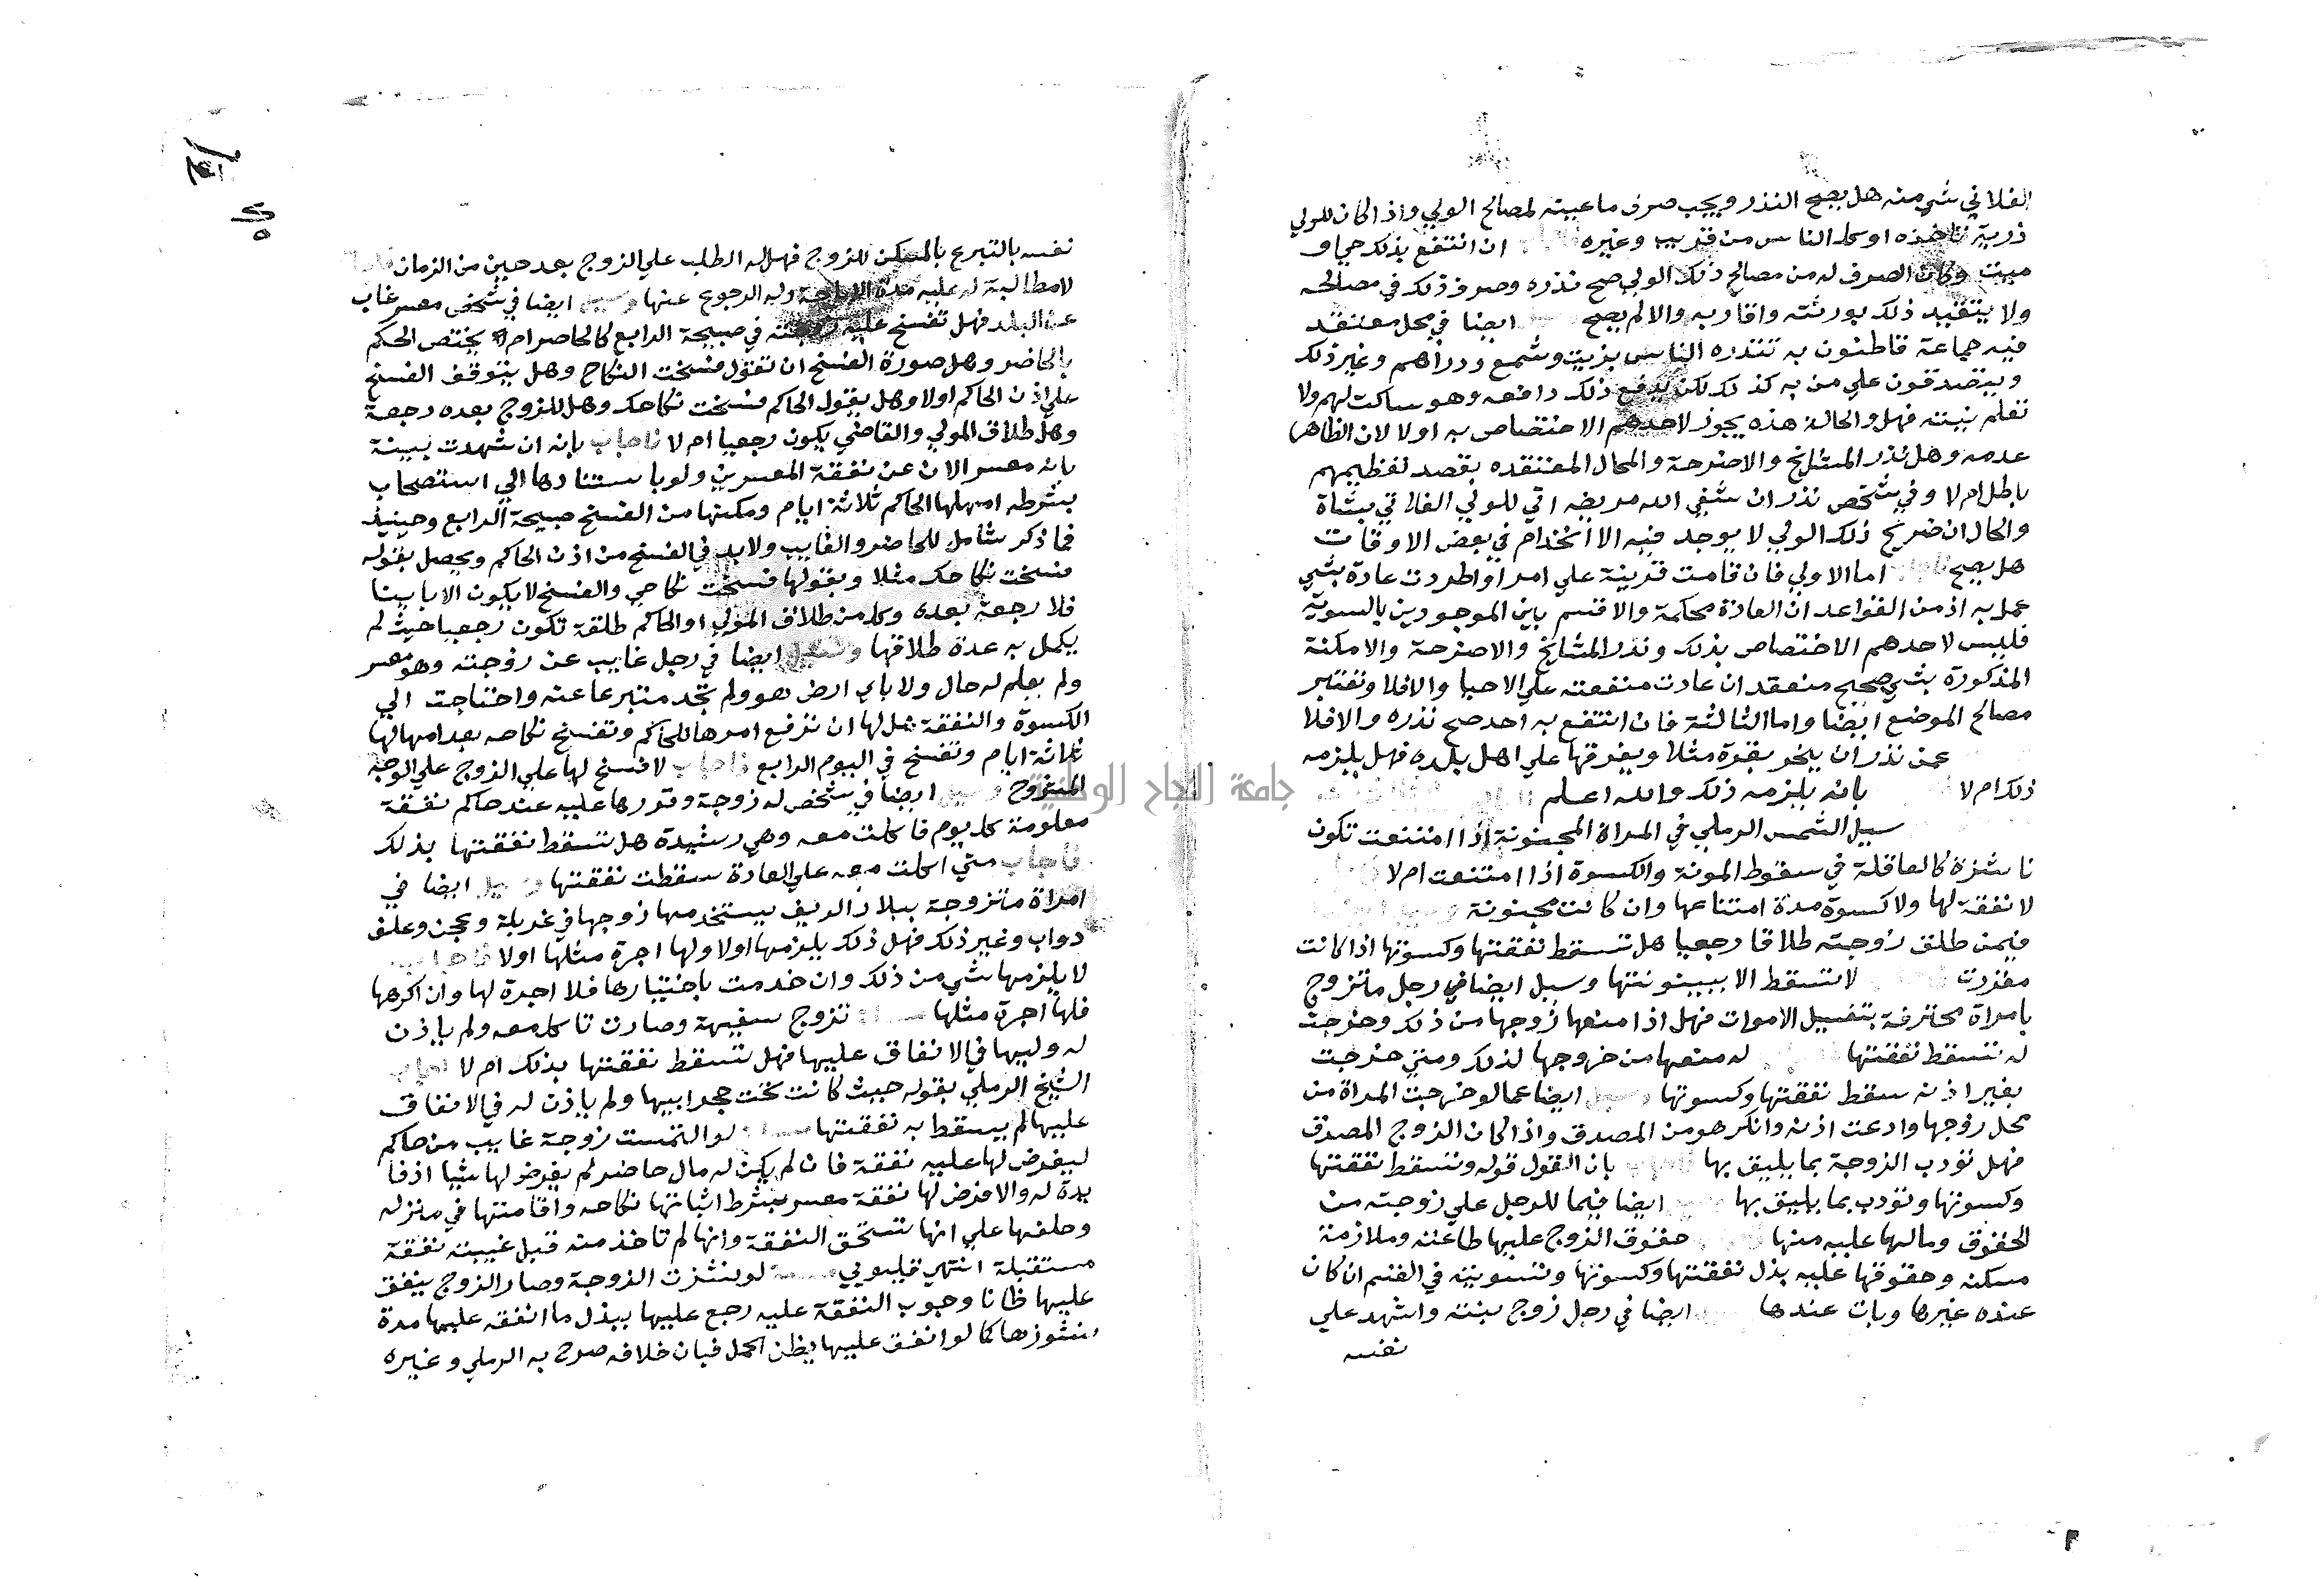 الفلاني شي منه هل يصح النذر ويجب صرف ما عينه لمصالح الولي واذا كان للولي
ذرية تاخذه او كل الناس من قريب وغيره ان انتفع بذلك حي او
ميت وكان الصرف له من مصالح ذلك الولي صح نذره وصرف ذلك في مصالحه
ولا يتقيد ذلك بورثته واقاربه والا لم يصح ايضا في محل معتقد
فيه جماعة قاطنون به تنذره الناس بزيت وشمع ودراهم وغير ذلك
ويتصدقون علي من به كذلك لكن يدفع ذلك دافعه وهو ساكت لهم ولا
تعلم نيته فهل والحالة هذه يجوز لاحدهم الاختصاص به اولا لان الظاهر
عدمه وهل نذر المشايخ والاضرحة والمحال المعتقده بقصد تعظيمهم
باطل ام لا وفي شخص نذر ان شفي الله مريضه اتي للولي الفلاني بشاة
والحال ان ضريح ذلك الولي لا يوجد فيه الا الخدام في بعض الاوقات
هل يصح اما الاولي فان قامت قرينة علي امر او اطردت عادة بشي
عمل به اذ من القواعد ان العادة محكمة والا قسم باين الموجودين بالسوية
فليس لاحدهم الاختصاص بذلك ونذر المشايخ والاضرحة والامكنة
المذكورة بشي صحيح منعقد ان عادت منفعته علي الاحيا والا فلا وتعتبر
مصالح الموضع ايضا واما الثالثة فان انتفع به احد صح نذره والا فلا
عمن نذر ان ينحر بقرة مثلا ويفرقها علي اهل بلده فهل يلزمه
ذلك ام لا بانه يلزمه ذلك والله اعلم
سيل الشمس الرملي في المراة المجنونة اذا امتنعت تكون
ناشزة كالعاقلة في سقوط المونة والكسوة اذا امتنعت ام لا
لا نفقة لها ولا كسوة مدة امتناعها وان كانت مجنونة
فيمن طلق زوجته طلاقا رجعيا هل تسقط نفقتها وكسوتها اذا كانت
مقررت لا تسقط الا ببينونتها وسيل ايضا في رجل متزوج
بامراة محترفة بتغسيل الاموات فهل اذا منعها زوجها من ذلك وخرجت
له تسقط نفقتها له منعها من خروجها لذلك ومتي خرجت
بغير اذنه سقط نفقتها وكسوتها وسيل ايضا عما لو خرجت المراة من
محل زوجها وادعت اذنه وانكر هو من المصدق واذا كان الزوج المصدق
فهل تودب الزوجة بما يليق بها بان القول قوله وتسقط نفقتها
وكسوتها وتودب بما يليق بها ايضا فيما للرجل علي زوجته من
الحقوق وما لها عليه منها حقوق الزوج عليها طاعته وملازمة
مسكنه وحقوقها عليه بذل نفقتها وكسوتها وتسويته في القسم ان كان
عنده غيرها وبات عندها ايضا في رجل زوج بنته واشهد علي
نفسه
نفسه بالتبرع بالمسكن للزوج فهل له الطلب علي الزوج بعد حين من الزمان
لا مطالبة له عليه مدة الاباحة وله الرجوع عنها وسيل ايضا في شخص معسر غاب
عن البلد فهل تفسخ عليه زوجته في صبيحة الرابع كالحاضر ام لا يختص الحكم
بالحاضر وهل صورة الفسخ ان تقول فسخت النكاح وهل يتوقف الفسخ
علي اذن الحاكم اولا وهل يقول الحاكم فسخت نكاحك وهل للزوج بعده رجعة
وهل طلاق المولي والقاضي يكون رجعيا ام لا فاجاب بانه ان شهدت بينة
بانه معسر الان عن نفقة المعسرين ولو باستنادها الي استصحاب
بشرطه امهلها الحاكم ثلاثة ايام ومكنها من الفسخ صبيحة الرابع وحينيذ
فما ذكر شامل للحاضر والغايب ولابد في الفسخ من اذن الحاكم ويحصل بقوله
فسخت نكاحك مثلا وبقولها فسخت نكاحي والفسخ لا يكون الا باينا
فلا رجعة بعده وكل من طلاق المولي او الحاكم طلقة تكون رجعيا حيث لم
يكمل به عدة طلاقها وسيل ايضا في رجل غايب عن زوجته وهو معسر
ولم يعلم له حال ولا باي ارض هو ولم تجد متبرعا عنه واحتاجت الي
الكسوة والنفقة هل لها ان ترفع امرها للحاكم وتفسخ نكاحه بعد امهالها
ثلاثة ايام وتفسخ في اليوم الرابع فاجاب لا فسخ لها علي الزوج علي الوجه
المشروح وسيل ايضا في شخص له زوجة وقررها عليه عند حاكم نفقة
معلومة كل يوم فاكلت معه وهي رشيدة هل تسقط نفقتها بذلك
فاجاب متي اكلت معه علي العادة سقطت نفقتها وسيل ايضا في
امراة متزوجة ببلاد الريف يستخدمها زوجها في غربلة وعجن وعلف
دواب وغير ذلك فهل ذلك يلزمها اولا ولها اجرة مثلها اولا فاجاب
لا يلزمها شي من ذلك وان خدمت باختيارها فلا اجرة لها وان اكرهها
فلها اجرة مثلها تزوج سفيهة وصارت تاكل معه ولم ياذن
له وليها في الانفاق عليها فهل تسقط نفقتها بذلك ام لا اجاب
الشيخ الرملي بقوله حيث كانت تحت حجر ابيها ولم ياذن له في الانفاق
عليها لم يسقط به نفقتها لو التمست زوجة غايب من حاكم
ليفرض لها عليه نفقة فان لم يكن له مال حاضر لم يفرض لها شيا اذ فا
يدة له والا فرض لها نفقة معسر بشرط اثباتها نكاحه واقامتها في منزله
وحلفها علي انها تستحق النفقة وانها لم تاخذ منه قبل غيبته نفقة
مستقبلة انتهي قليوبي لو نشزت الزوجة وصار الزوج ينفق
عليها ظانا وجوب النفقة عليه رجع عليها ببذل ما انفقه عليها مدة
نشوزها كما لو انفق عليها بظن الحمل فبان خلافه صرح به الرملي وغيره
جامعة النجاح الوطنية